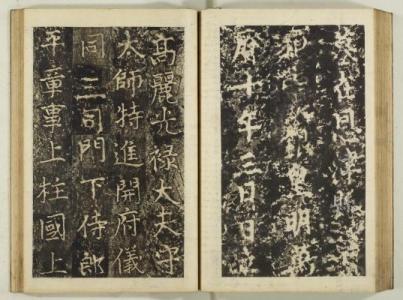 在恩津
皇明萬
曆十年三月日
高麗光祿大夫守
太師特進開府儀
同三司門下侍郎
平章事上柱國上